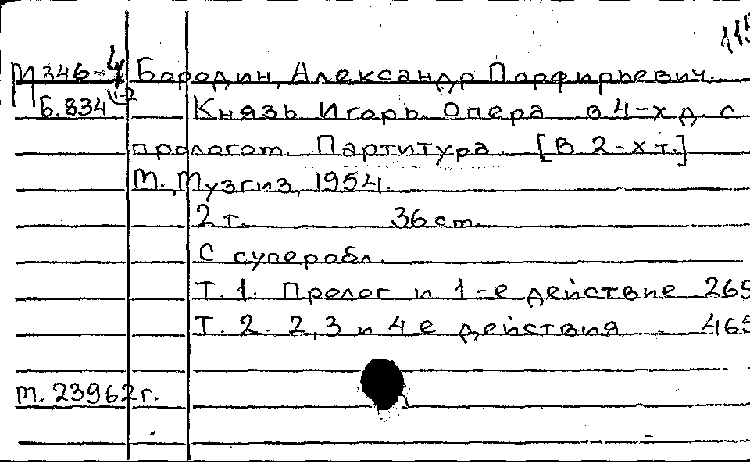 115
М346-4 Бородин, Александр Порфирьевич.
Б.834 1-2 Князь Игорь. Опера в 4-х д. с
прологом. Партитура. [В 2-х т.]
М., Музгиз, 1954.
2 т. 36 см.
С суперобл.
Т. 1. Пролог и 1-е действие 265
Т. 2. 2, 3 и 4-е действия 465
т. 23962г.